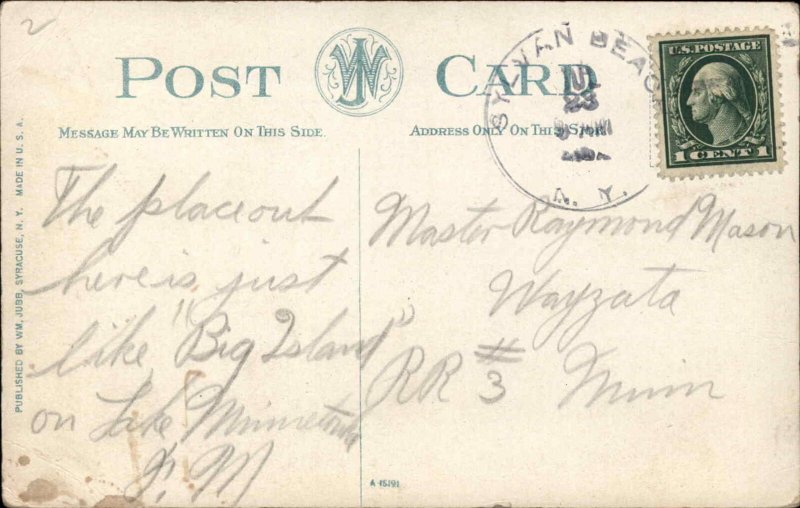 2
POST CARD
MESSAGE MAY BE WRITTEN ON THIS SIDE.
ADDRESS ONLY ON THIS SIDE
SYLVAN BEACH
23
N. Y.
U.S. POSTAGE
1 CENT 1
PUBLISHED BY WM. JUBB, SYRACUSE, N. Y. MADE IN U. S. A.
The place out
here is just
like "Big Island"
on Lake Minnetonka
J. M
Master Raymond Mason
Wayzata
RR # 3 Minn
A-15191